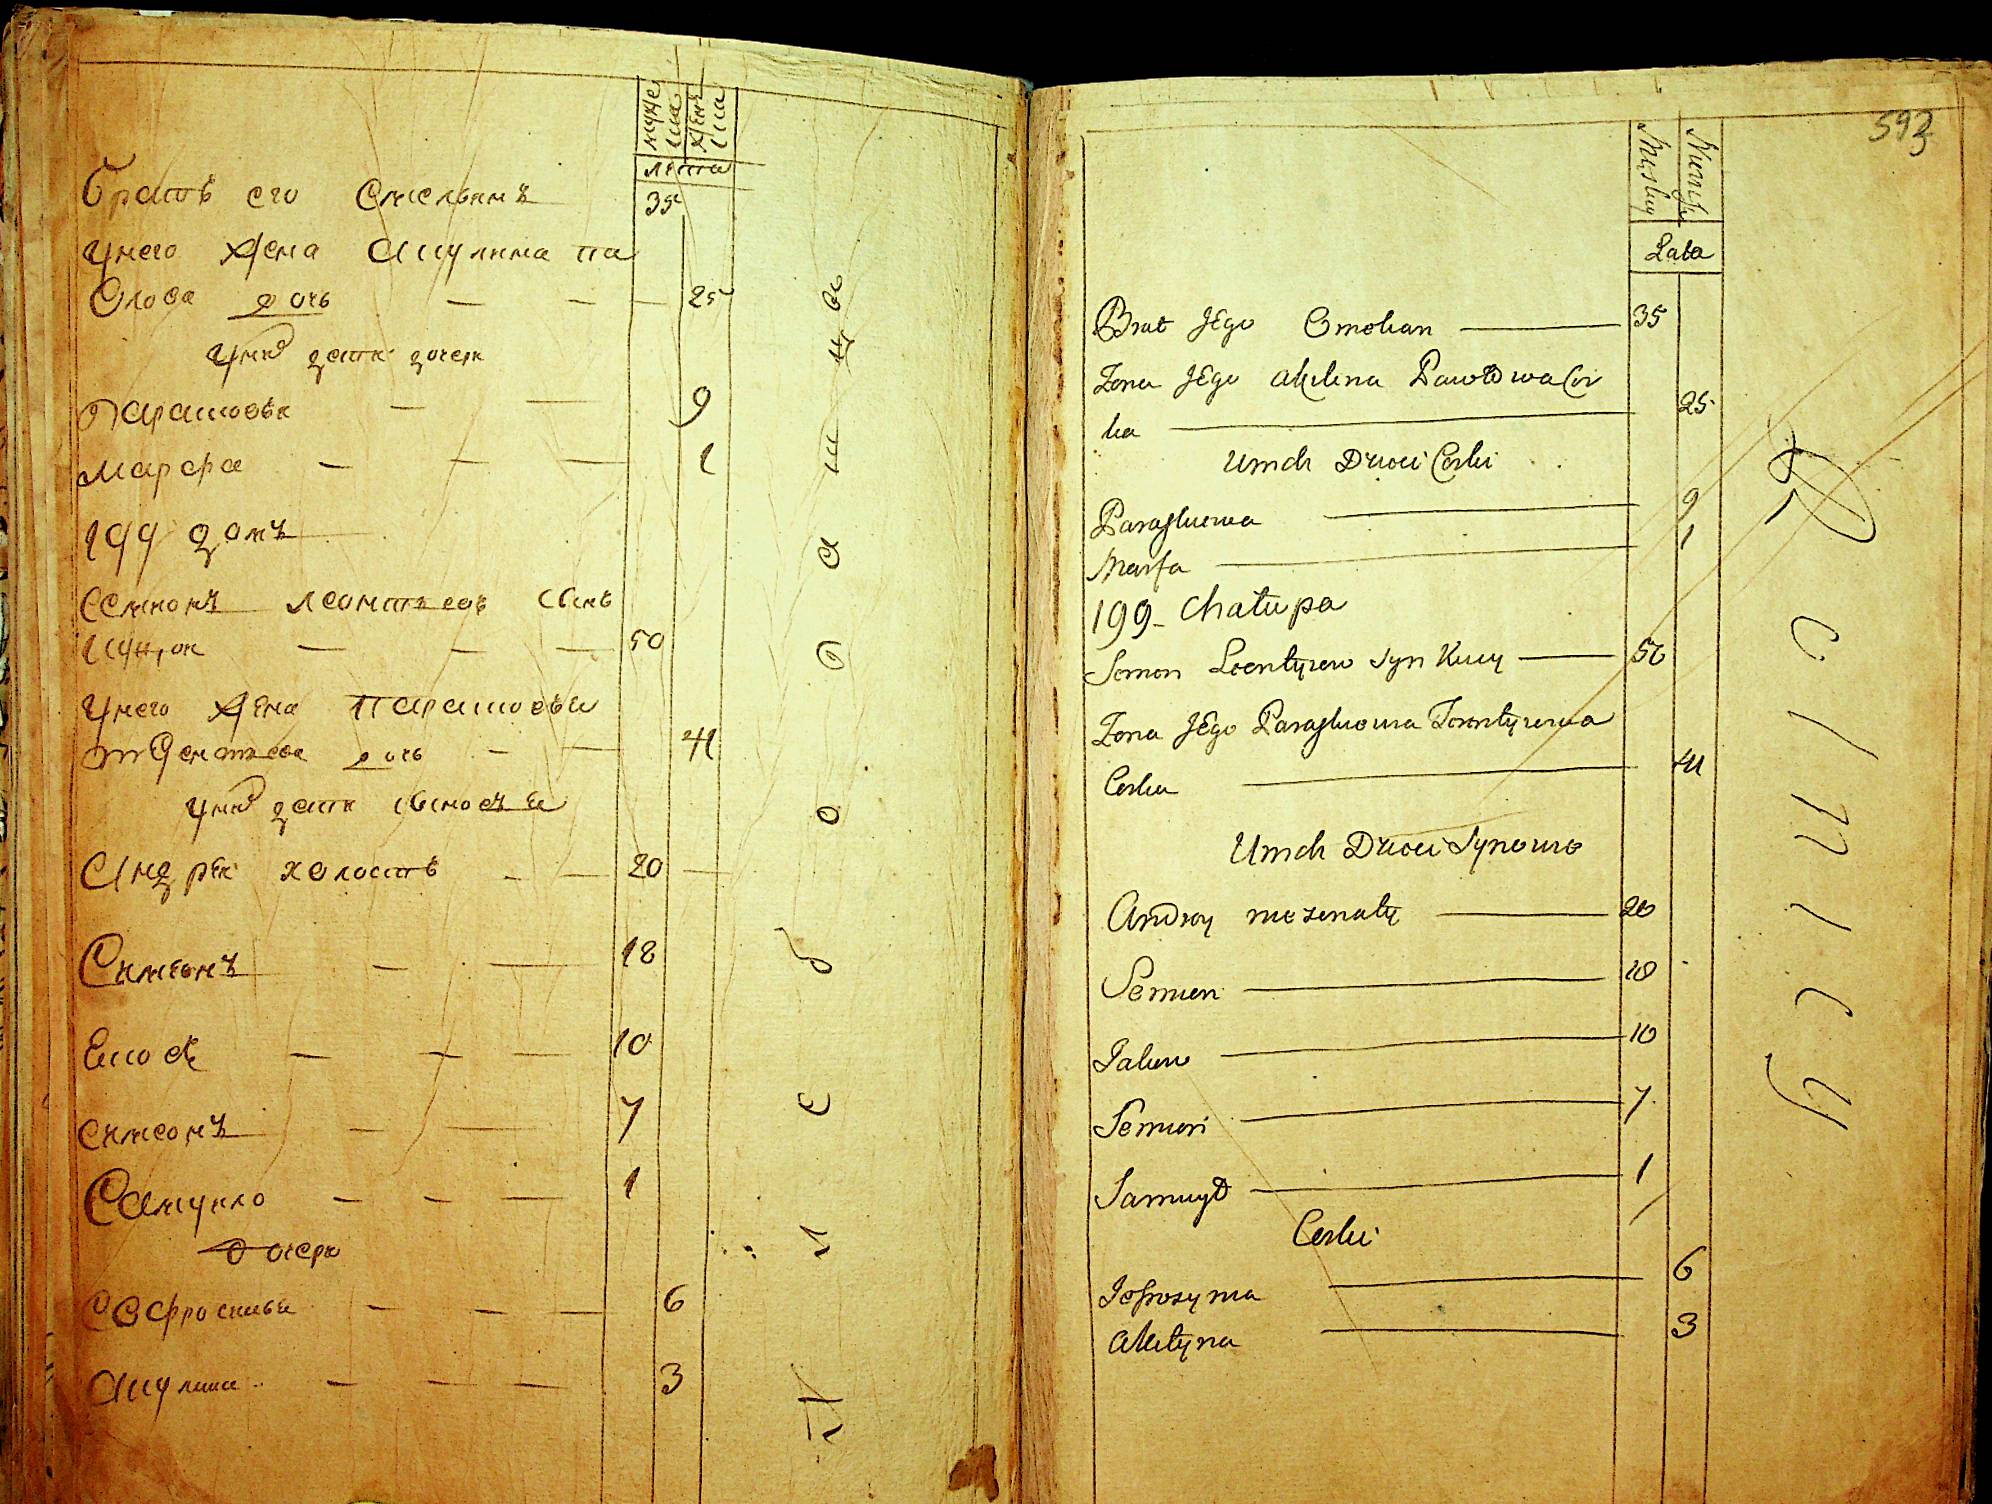 мужеска
женска
лета
Братъ его Емельянъ 35
унего жена Акулина па
влова дочь 25
уних дети дочери
Парасковя 9
Марфа 1
199 домъ
Семионъ леонтьевъ сынъ
50
унего жена парасковья
дочь 41
унихъ дети сыновья
Андреи холостъ 20
Симеонъ 18
10
симеонъ 7
Самуило 1
дочери
Еофросинья 6
Акулина 3
593
Męskiey
Lata
Brat Jego Omelian 35
Zona Jego Akilina Pawłowa Cor
ka 25
Umch Dzieci Corki
Paraskiewa 9
Marfa 1
199 - Chałupa
Semon Leontyiew syn 50
Zona Jego Paraskiewia
Corka 41
Umch Dzieci Synowie
Andrey nie zonaty 20
Semion 18
10
Semion 7
Samuyło 1
Corki
Jefrozynia 6
Akilyna 3